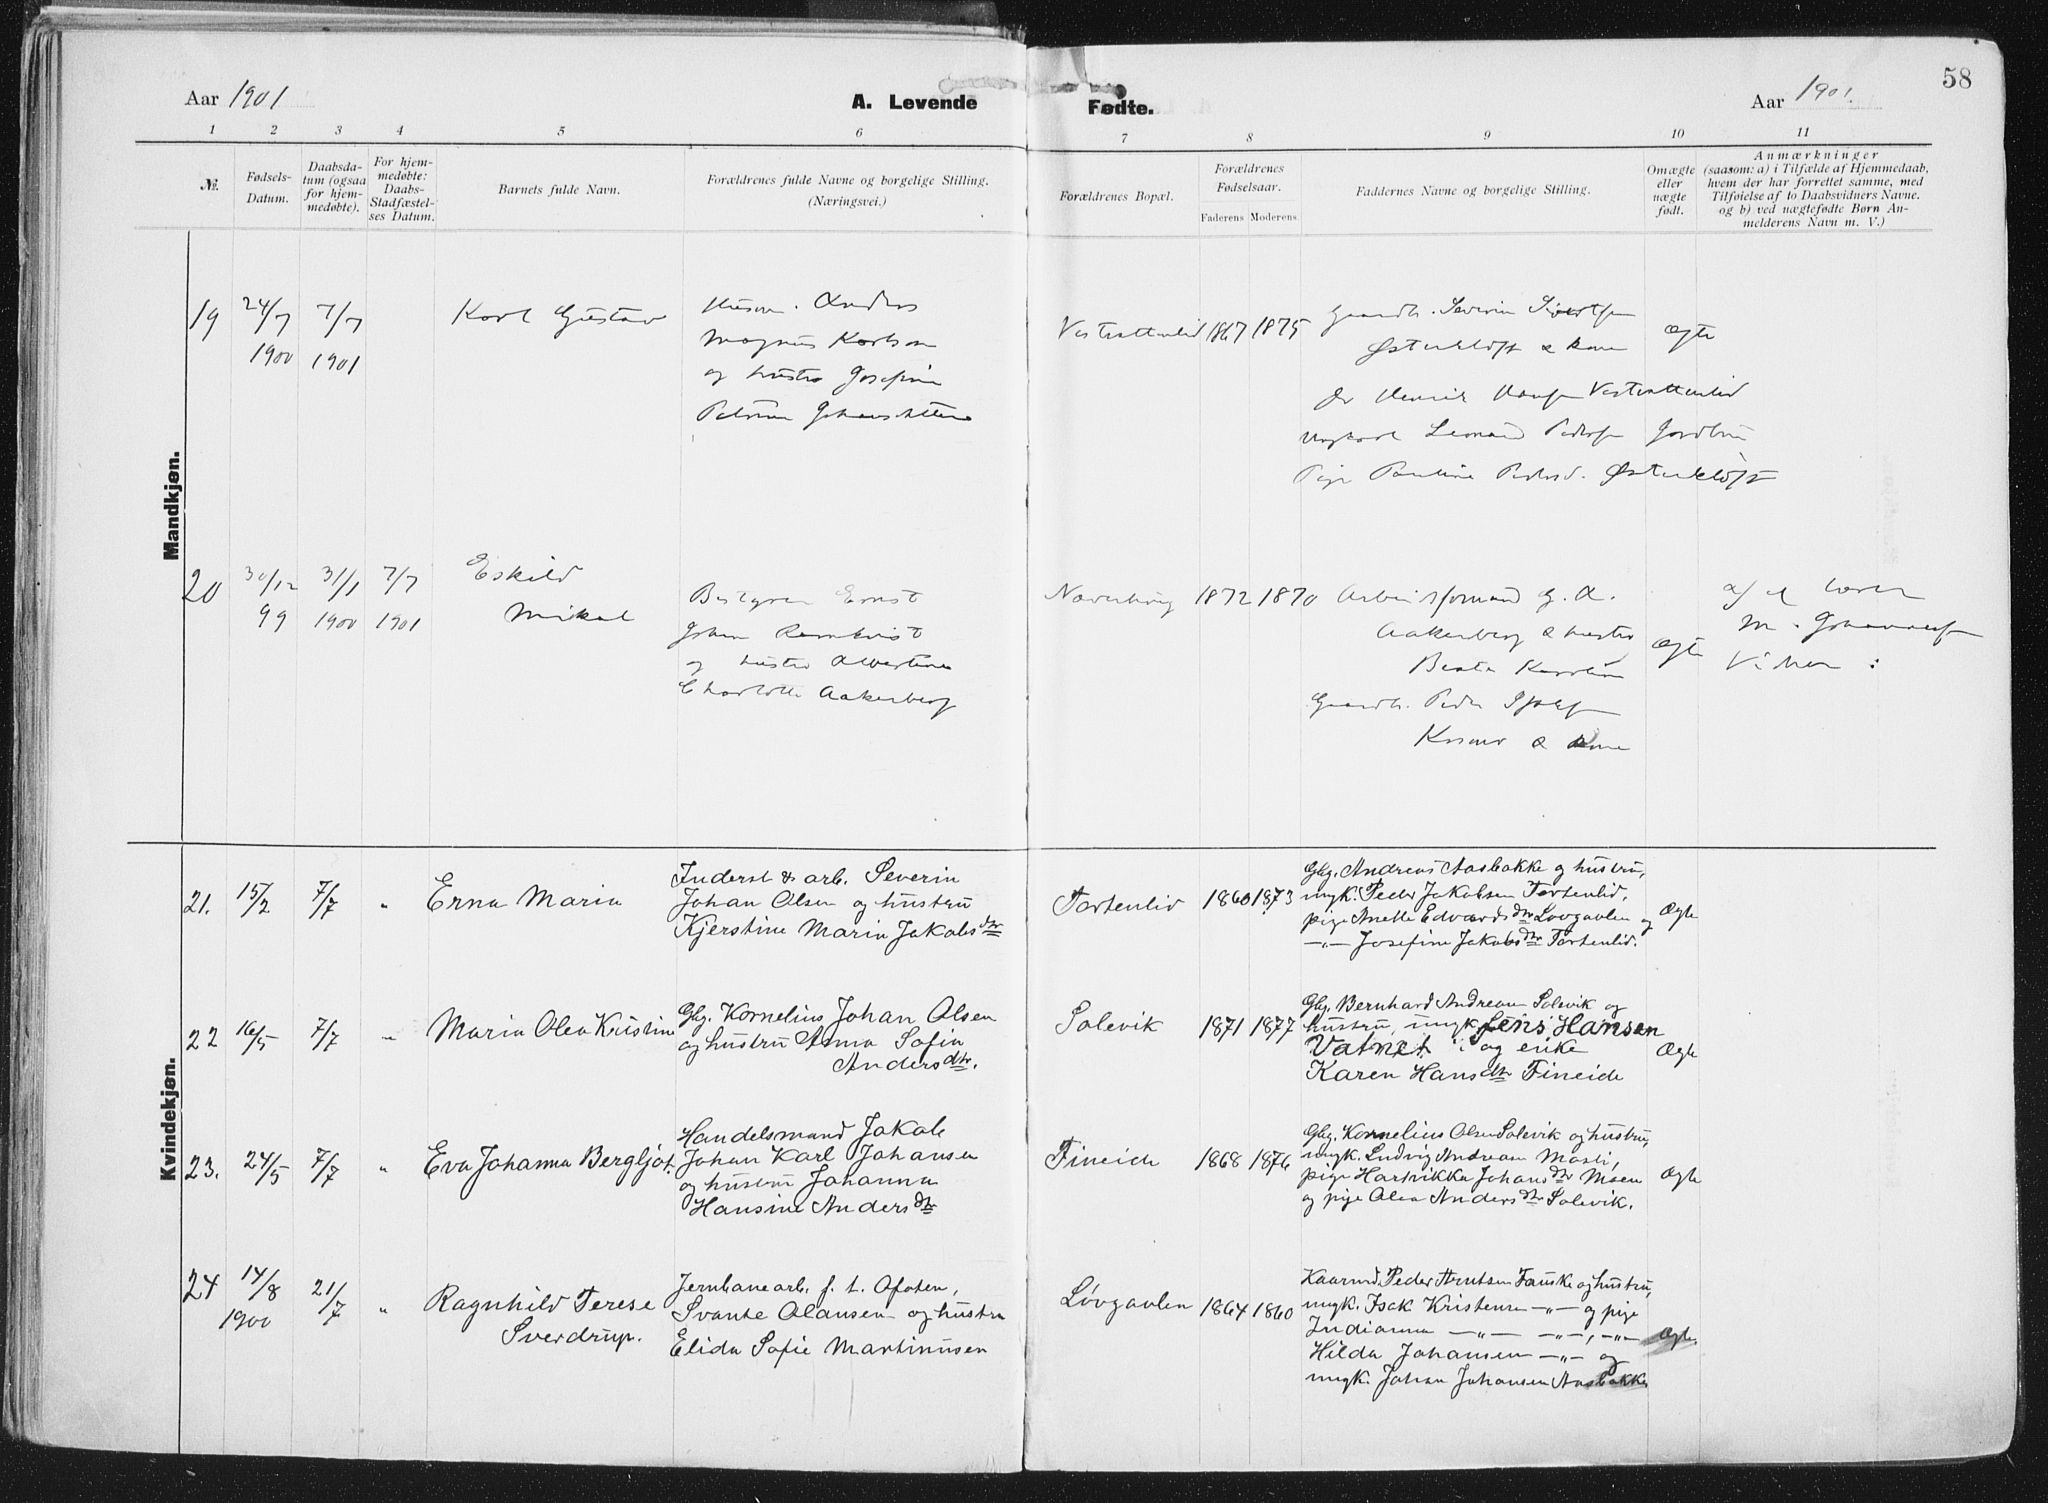 58
Aar 1901
A. Levende Fødte.
Aar 1901.
1 2 3 4 5 6 7 8 9 10 11
№.
Fødsels-
Datum.
Daabsda-
tum (ogsaa
for hjem-
medøbte).
For hjem-
medøbte:
Daabs-
Stadfæstel-
ses Datum.
Barnets fulde Navn.
Forældrenes fulde Navne og borgelige Stilling.
(Næringsvei.)
Forældrenes Bopæl.
Forældrenes
Fødselsaar.
Faderens Moderens.
Faddernes Navne og borgelige Stilling.
Omægte
eller
uægte
født.
Anmærkninger
(saasom: a) i Tilfælde af Hjemmedaab,
hvem der har forrettet samme, med
Tilføielse af to Daabsvidners Navne.
og b) ved uægtefødte Børn An-
melderens Navn m. V.)
Mandkjøn.
19
24/7
1900
7/7
1901
Karl Gustav
Anders
Magnus Karlsen
og hustro Josefine
1867 1875
Gaardb. Severin
Østerkløft & kone
Henrik Vestvattenlid
Ungkarl Pedersen
Pige Pauline Pedersd. Østerkløft
Ægte
20
30/12
99
31/1
1900
7/7
1901
Eskild
Mikal
Bestyrer Ernst
Johan
og hustro Albertine
Charlotte Aakerberg
1872 1870
Arbeidsformand G. A.
Aakerberg & hustro
Beata
Gaardb. Peder
& kone
Ægte
af
M.
Kvindekjøn.
21. 15/2 7/7 „ Erna Maria
Inderst & arb. Severin
Johan Olsen og hustru
Kjerstine Marie Jakobsdtr
Tortenlid 1860 1873
Gbg. Andreas Aasbakke og hustru,
ungk. Peder Jakobsen Tortenlid,
pige Anette Edvardsdtr Lovgavlen og
—„— Josefine Jakobsdtr Tortenlid.
Ægte
22 16/5 7/7 „ Maria Olea Kristine
Gbg. Kornelius Johan Olsen
og hustru Anna Sofie
Andersdtr.
Solevik 1871 1877
Gbg. Bernhard Andreasen Solevik og
hustru, ungk. Jens Hansen
Vatnet og enke
Karen Hansdtr Fineide
Ægte
23. 24/5 7/7 „ Eva Johanna Bergljot.
Handelsmand Jakob
Johan Karl Johansen
og hustru Johanna
Hansine Andersdtr
Fineide 1868 1876
Gbg. Kornelius Olsen Solevik og hustru,
ungk. Ludvig Andreasen Mosti,
pige Hartvikka Johansdtr Moen
og pige Olea Andersdtr Solevik.
Ægte
24 14/8
1900
21/7 „ Ragnhild Terese
Sverdrup.
Jernbanearb. f. t. Ofoten,
Svante Olausen og hustru
Elida Sofie Martinusen
Lövgavlen 1864 1860
Kaarmd. Peder Arntsen Fauske og hustru,
ungk. Isak Kristensen —„— og pige
Indianna —„— —„—, —„—
Hilda Johansen —„— og
ungk. Johan Johansen Aasbakke
Ægte